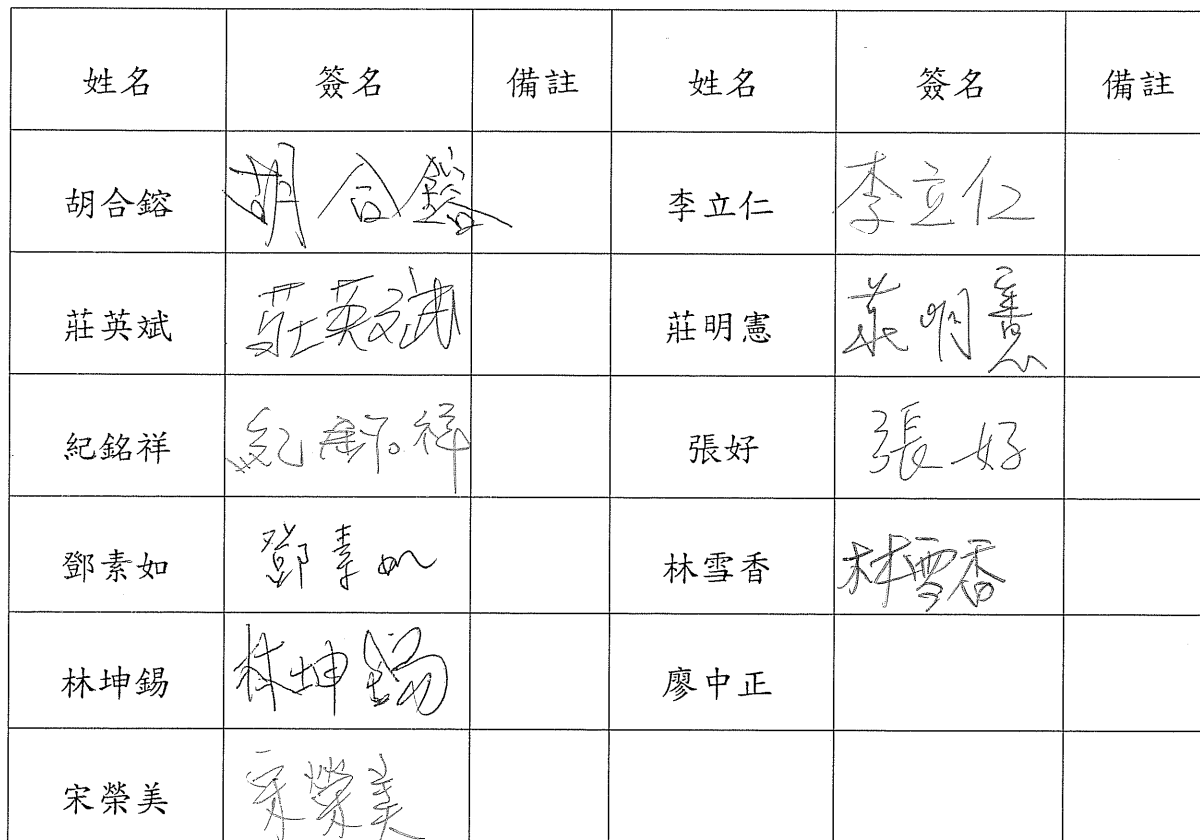 姓名 簽名 備註 姓名 簽名 備註
胡合鎔 胡合鎔 李立仁 李立仁
莊英斌 莊英斌 莊明憲 莊明憲
紀銘祥 紀銘祥 張好 張好
鄧素如 鄧素如 林雪香 林雪香
林坤錫 林坤錫 廖中正
宋榮美 宋榮美